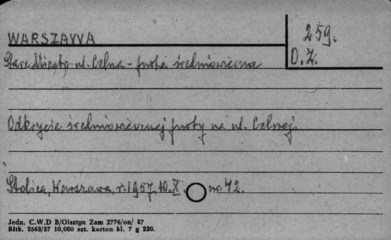 WARSZAWA
259.
O.Z.
Stare Miasto - ul. Celna - furta średniowieczna
Odkrycie średniowiecznej furty na ul. Celnej.
Stolica, Warszawa, r. 1957, 10.X. nr. 42.
Jedn. C.W.D B/Olsztyn Zam 2776/on/ 57
Bltk. 2563/57 10,000 szt. karton kl. 7 g 220.